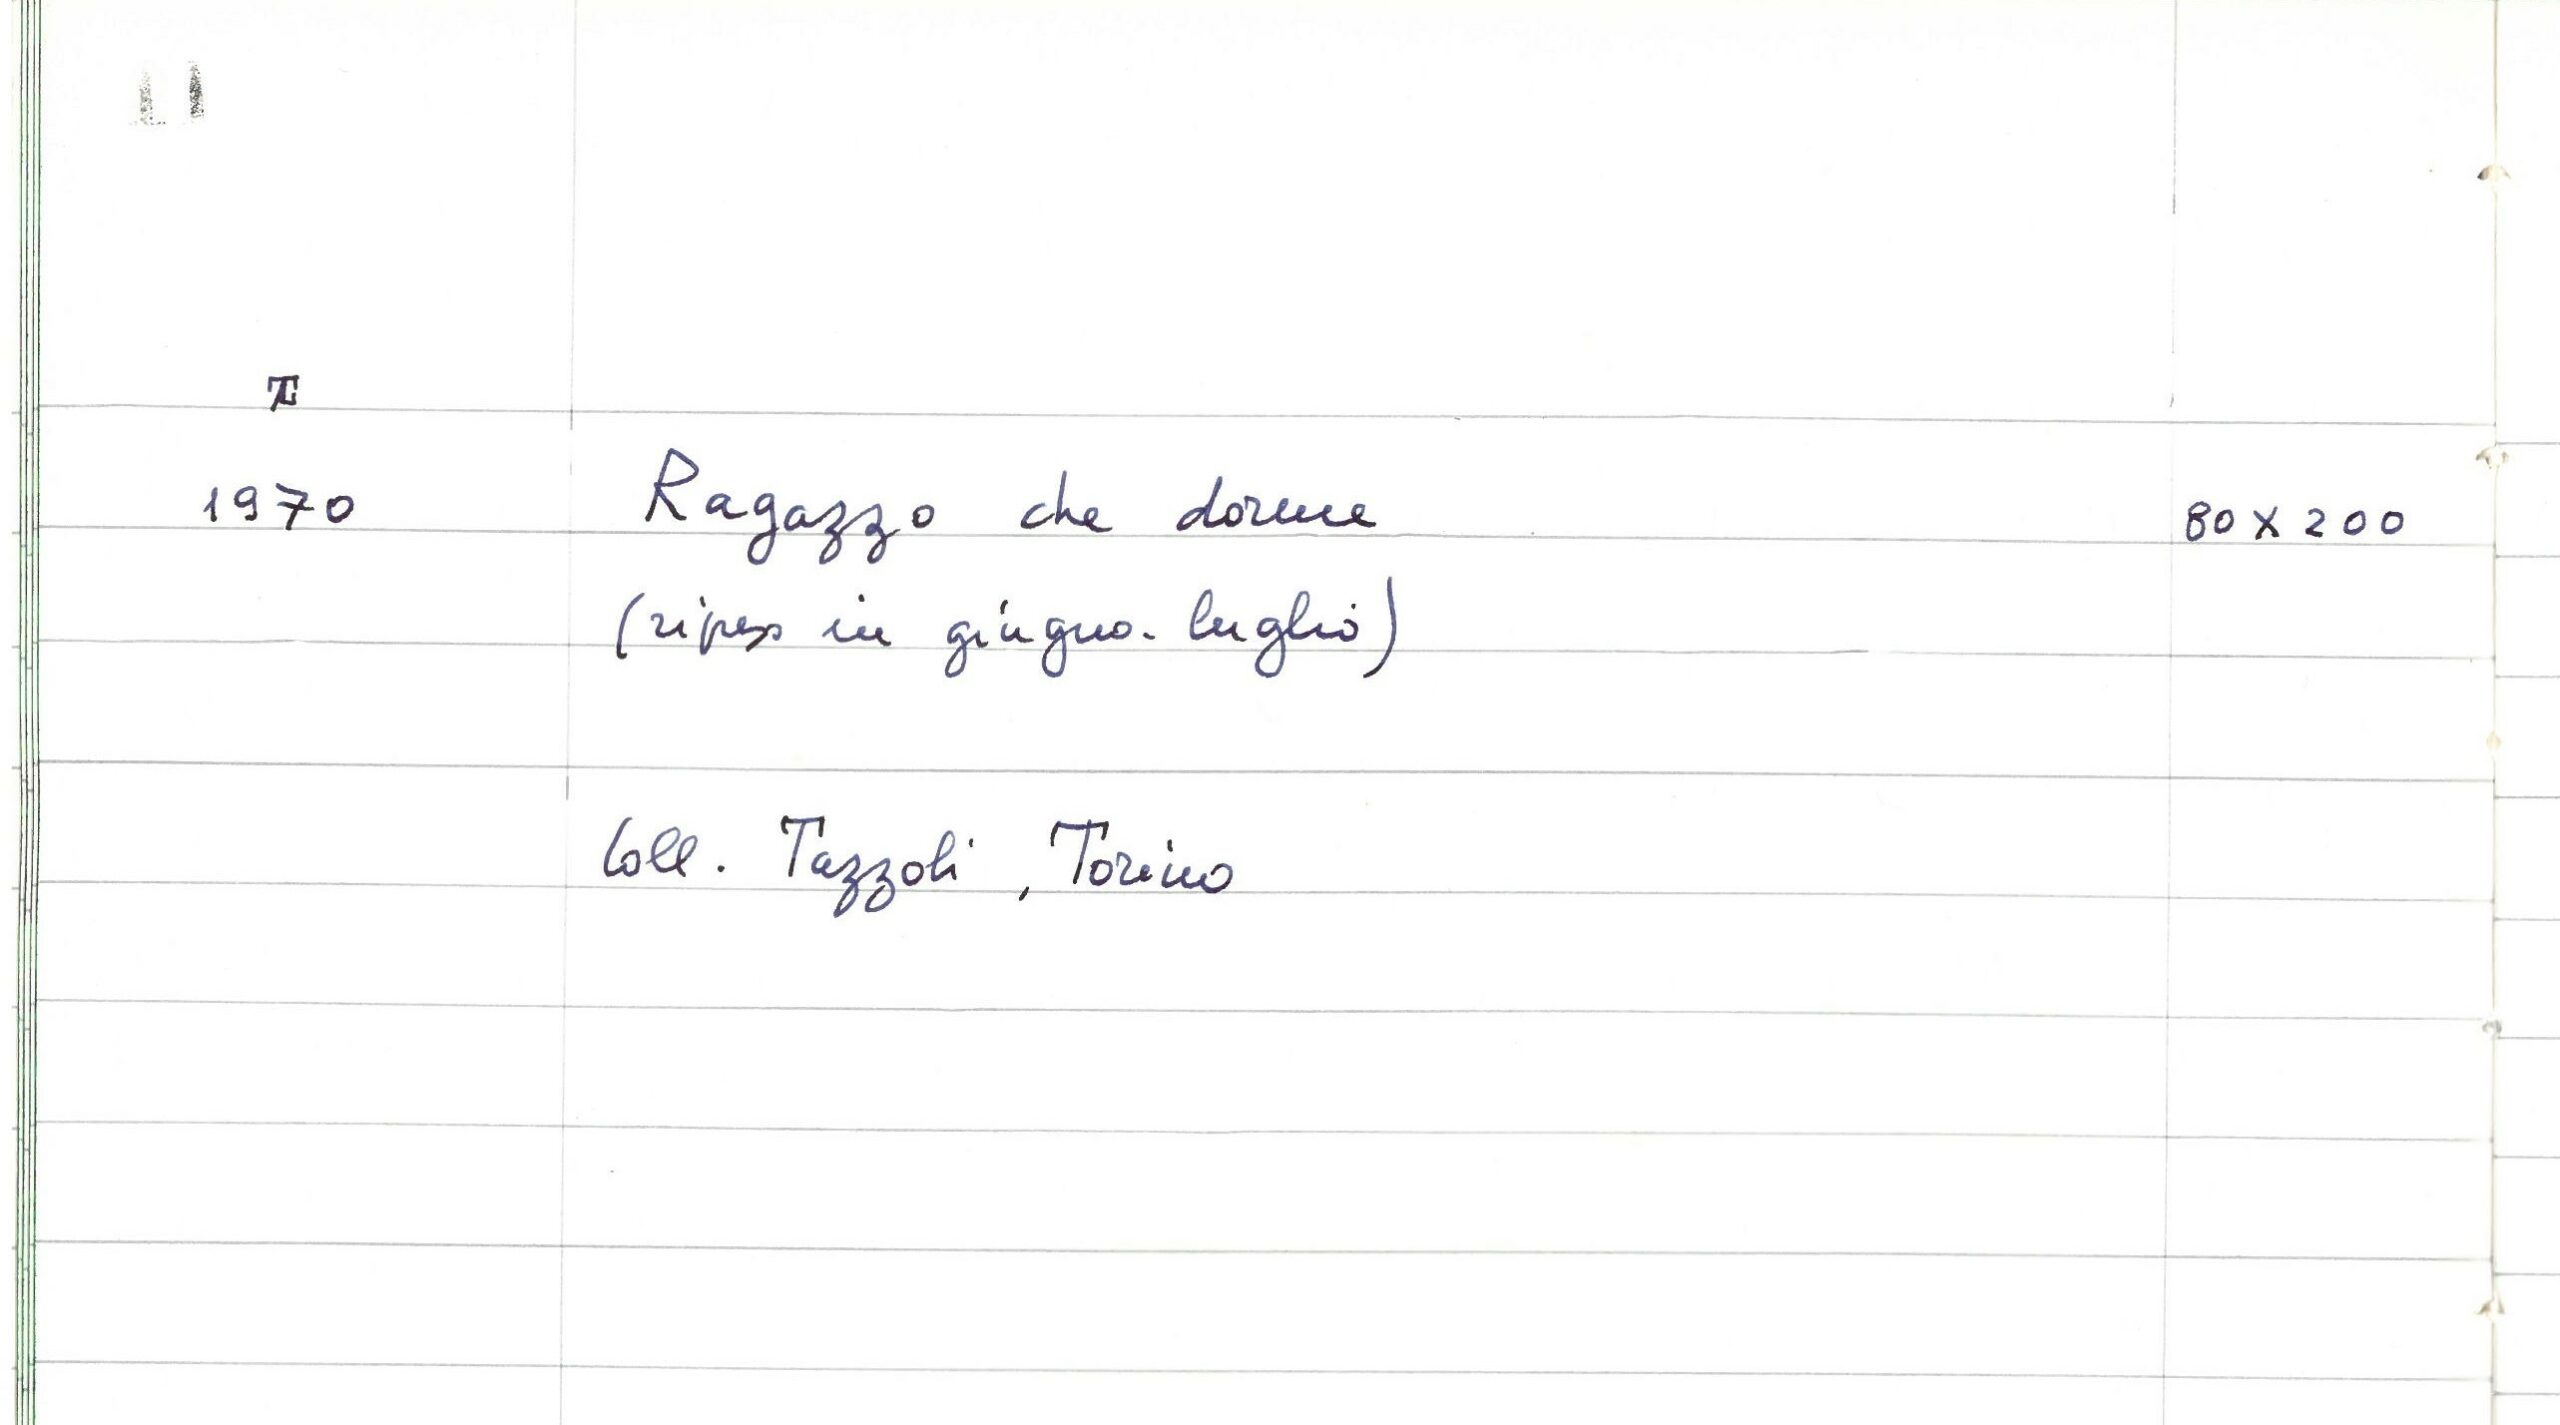 1970 Ragazzo che dorme 80 x 200
(ripreso in giugno-luglio)
Coll. Tazzoli, Torino